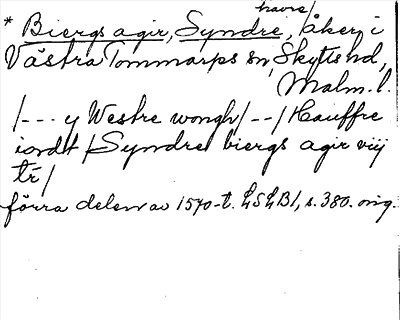 havre/
* Biergs agir, Syndre, åker i
Västra Tommarps sn, Skytts hd,
Malm. l.
/--- y Westre wongh/--/ Hauffre
iordt / Syndre biergs agir viij
tr /
förra delen av 1570-t. LSLB1, s. 380. orig.